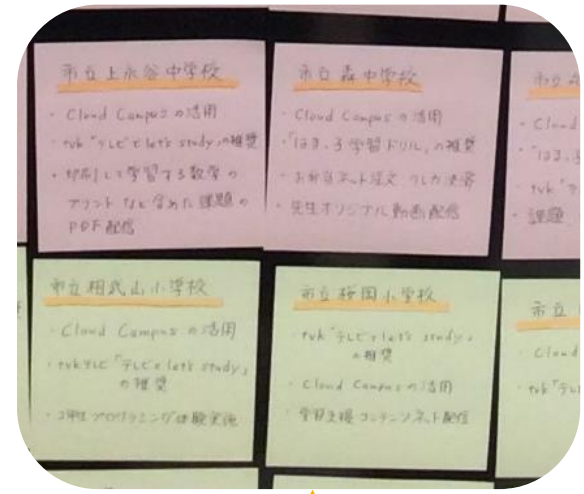 市立上永谷中学校
・Cloud Campusの活用
・tvk「テレビでlet's study」の推奨
・印刷して学習する数学の
プリントなど含めた課題の
PDF配信
市立森中学校
・Cloud Campusの活用
・「はまっ子学習ドリル」の推奨
・お弁当ネット注文 クレカ決済
・先生オリジナル動画配信
・Cloud
・tvk
・課題
市立相武山小学校
・Cloud Campusの活用
・tvkテレビ「テレビでlet's study」
の推奨
・プログラミング体験実施
市立桜岡小学校
・tvk「テレビでlet's study」
の推奨
・Cloud Campusの活用
・学習支援コンテンツネット配信
市立
・Cloud
・tvk